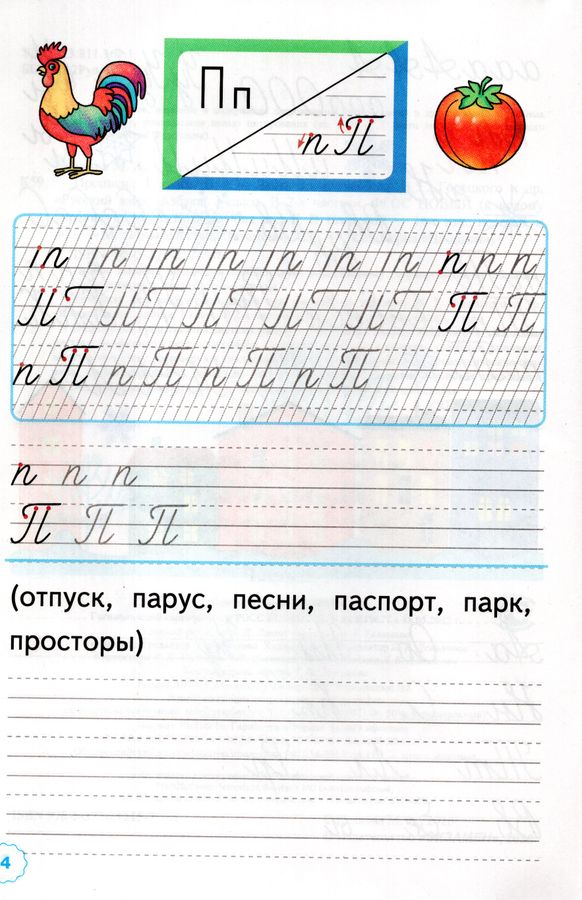 Пп
пП
п п п п п п п п п п
П П П П П П П
п П п П п П п П
п п п
П П П
(отпуск, парус, песни, паспорт, парк,
просторы)
4